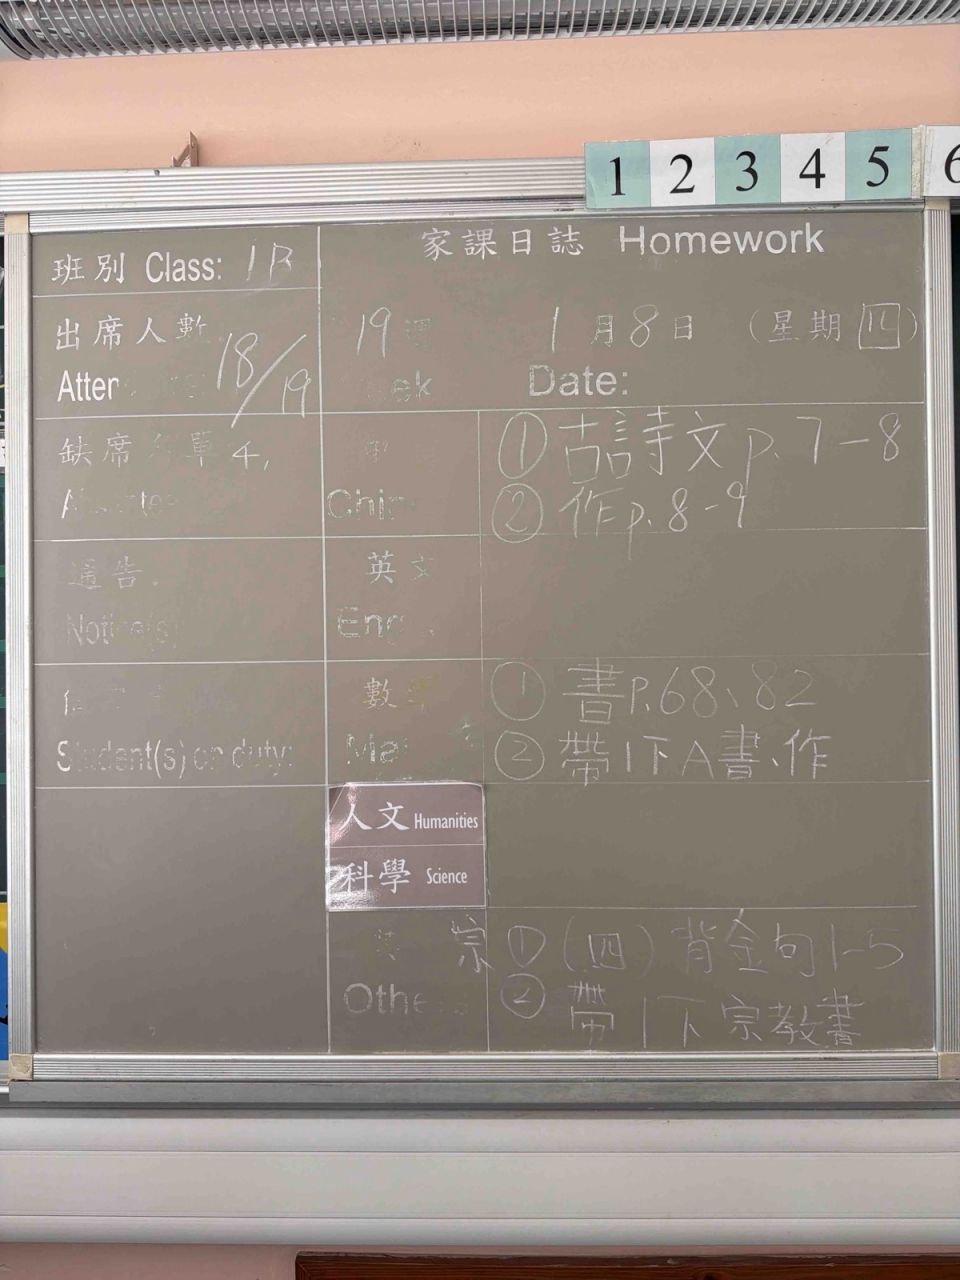 1 2 3 4 5 6
班別 Class: 1B
家課日誌 Homework
出席人數 18/19
Atten
19 週 1月8日 (星期四)
ek Date:
缺席 單 4,
Chin
① 古詩文 p. 7-8
② 作 p. 8-9
通告
Notice(s)
英文
Eng
Student(s) on duty:
數
Ma
① 書 P.68、82
② 帶1下A書、作
人文 Humanities
科學 Science
Othe
宗 ① (四) 背金句1-5
② 帶1下宗教書